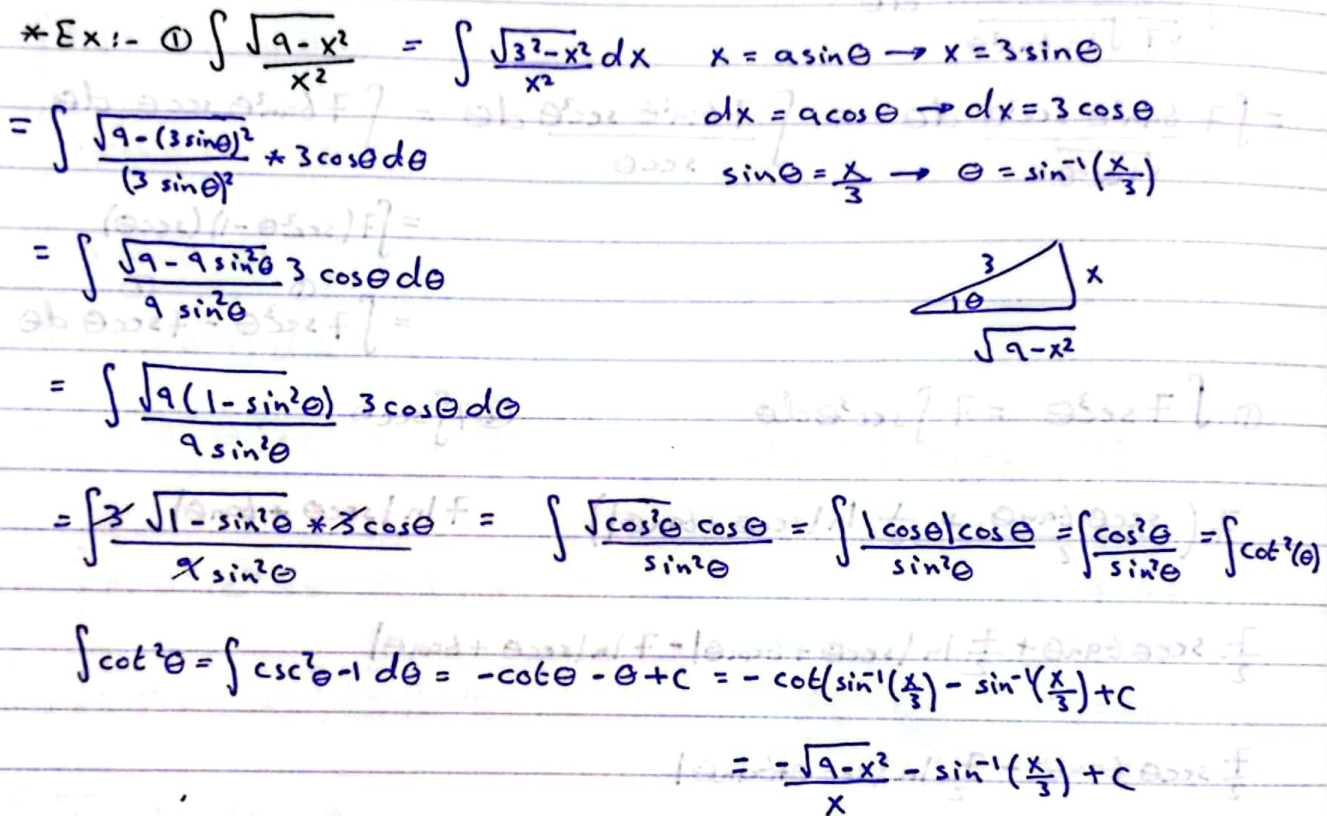 *Ex:- ① ∫ √(9-x²)/x² = ∫ √(3²-x²)/x² dx x = a sinθ → x = 3 sinθ
dx = a cosθ → dx = 3 cosθ
= ∫ √(9-(3 sinθ)²)/(3 sinθ)² * 3 cosθ dθ sinθ = x/3 → θ = sin⁻¹(x/3)
= ∫ √(9-9 sin²θ)/(9 sin²θ) 3 cosθ dθ 3 θ x √(9-x²)
= ∫ √(9(1-sin²θ))/(9 sin²θ) 3 cosθ dθ
= ∫ 3 √(1-sin²θ) * 3 cosθ/(9 sin²θ) = ∫ √(cos²θ) cosθ/sin²θ = ∫ |cosθ| cosθ/sin²θ = ∫ cos²θ/sin²θ = ∫ cot²(θ)
∫ cot²θ = ∫ csc²θ-1 dθ = -cotθ - θ + C = - cot(sin⁻¹(x/3) - sin⁻¹(x/3) + C
= -√(9-x²)/x - sin⁻¹(x/3) + C